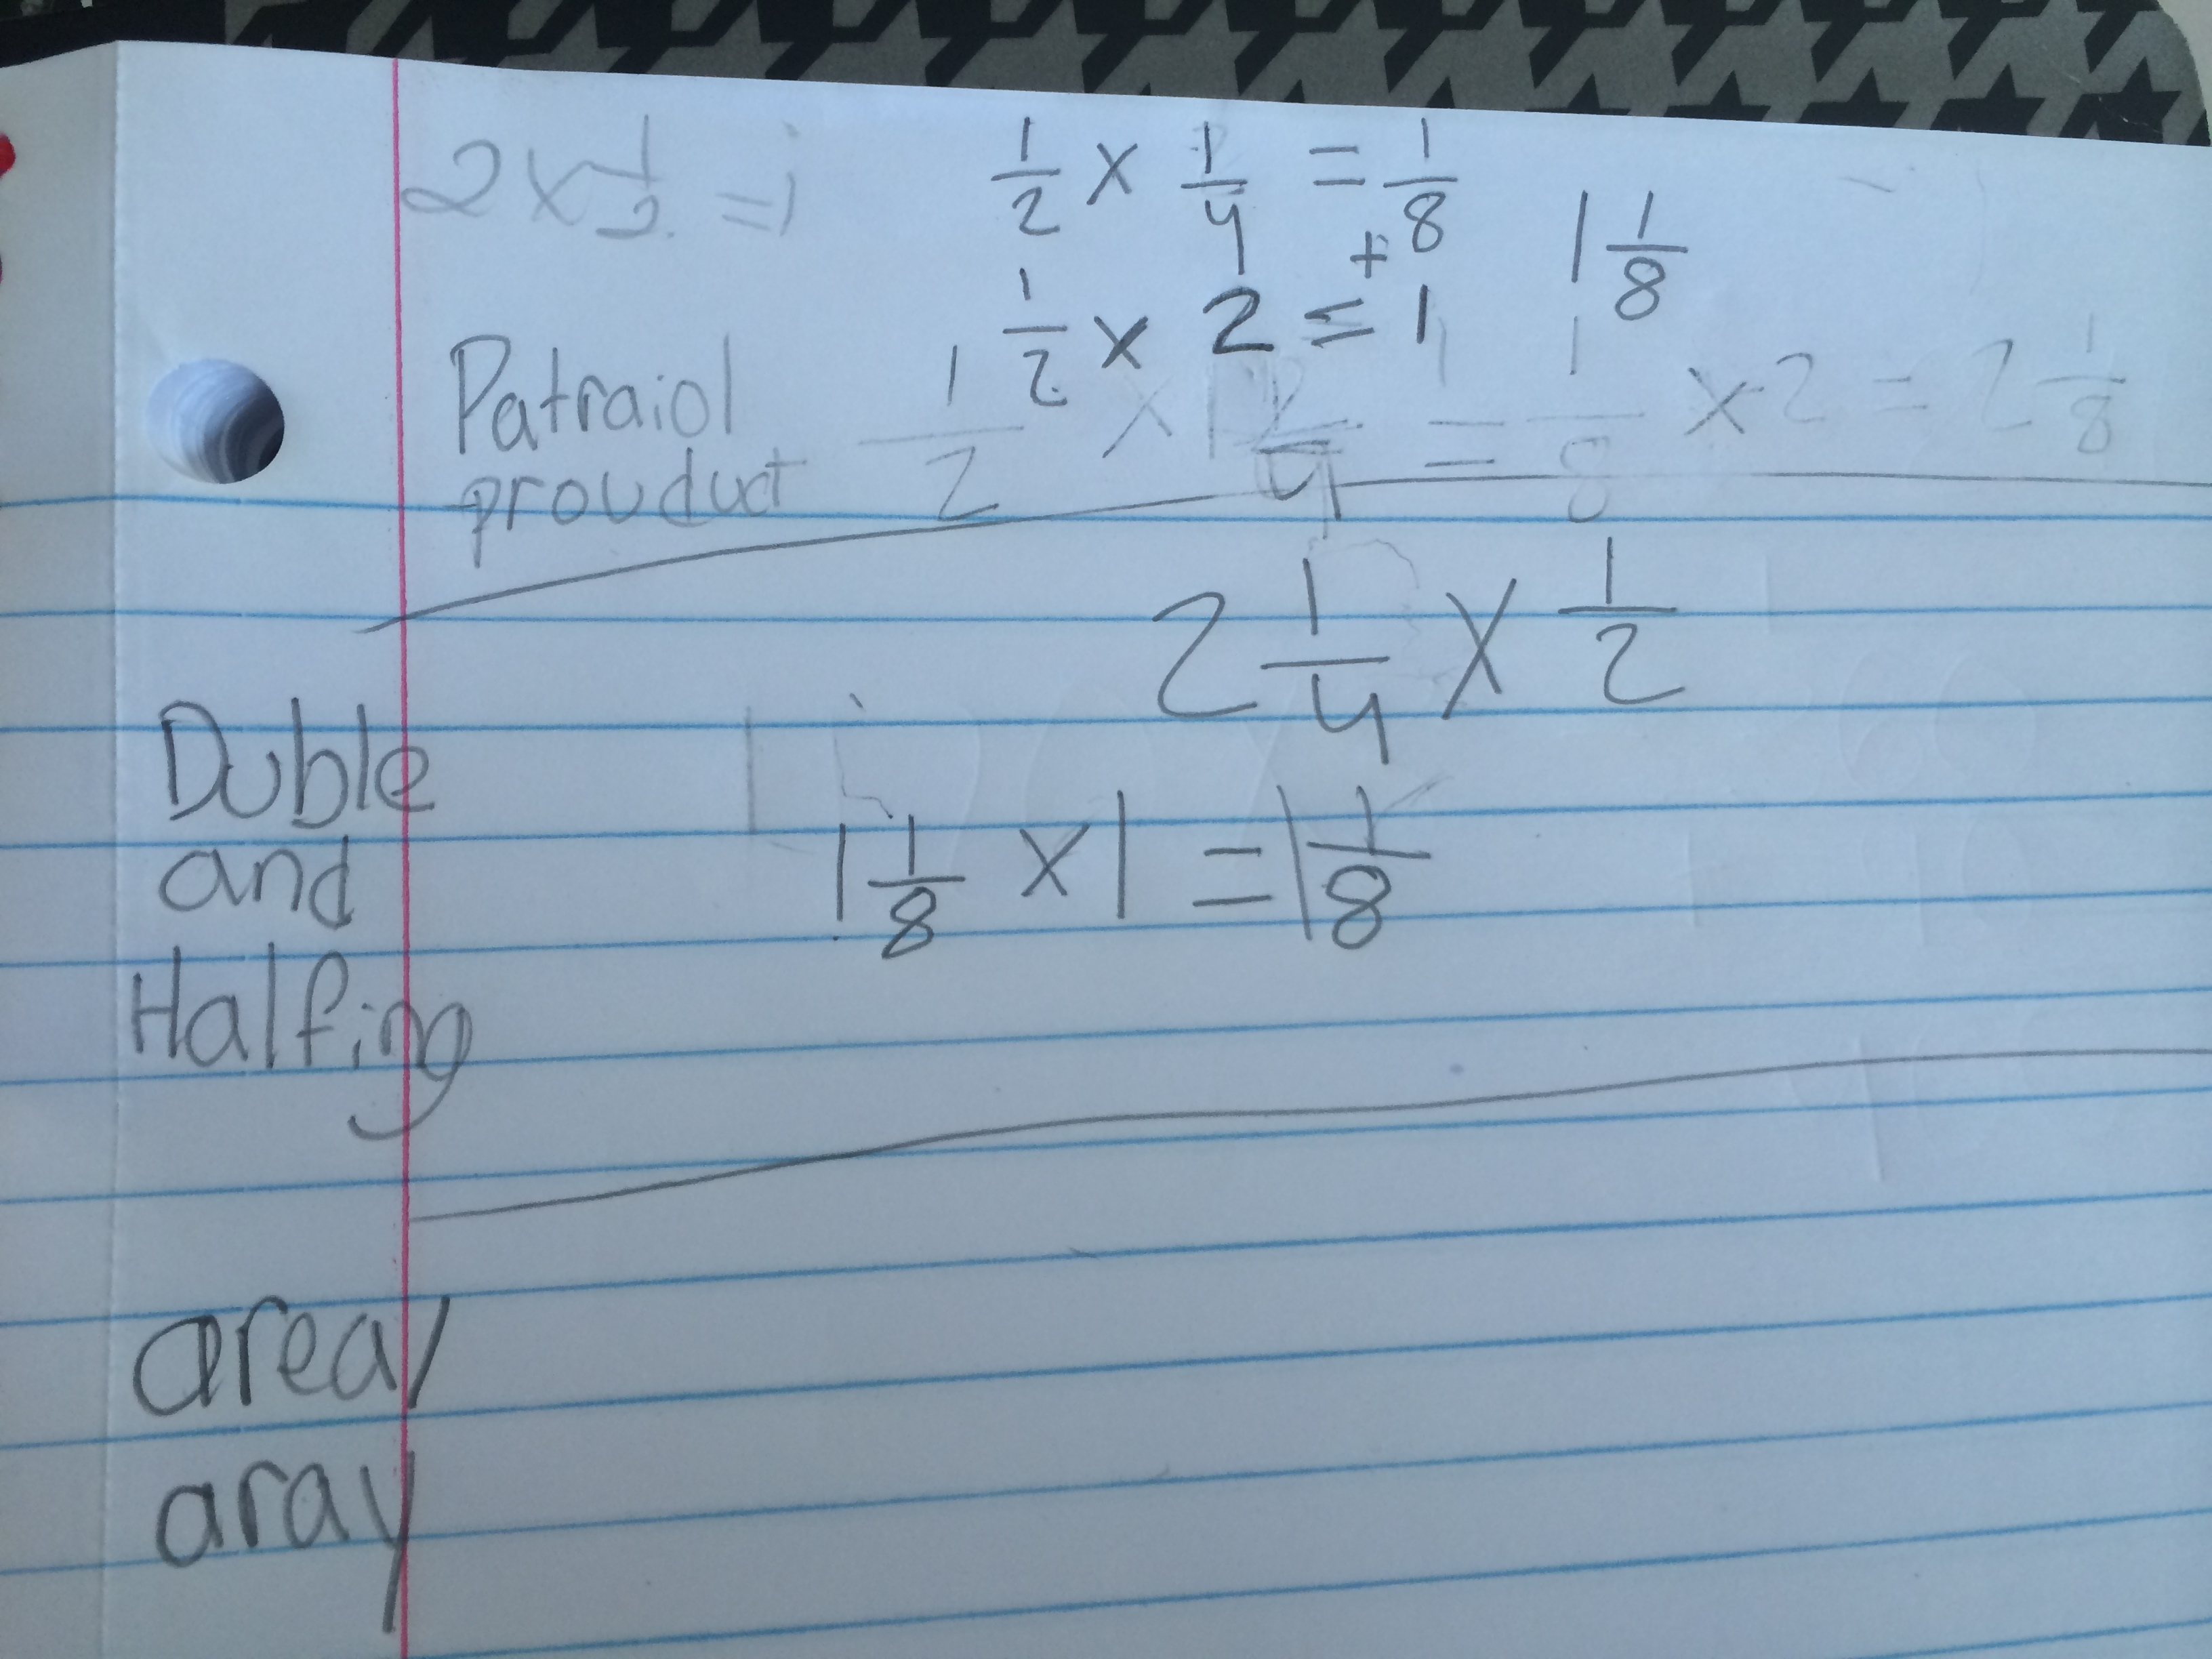 2 x 1/2 = 1
1/2 x 1/4 = 1/8
+
1/2 x 2 = 1
1 1/8
Patraiol
prouduct
1/2 x 1/4 = 1/8 x 2 = 2 1/8
2 1/4 x 1/2
Duble
and
Halfing
1 1/8 x 1 = 1 1/8
area/
aray